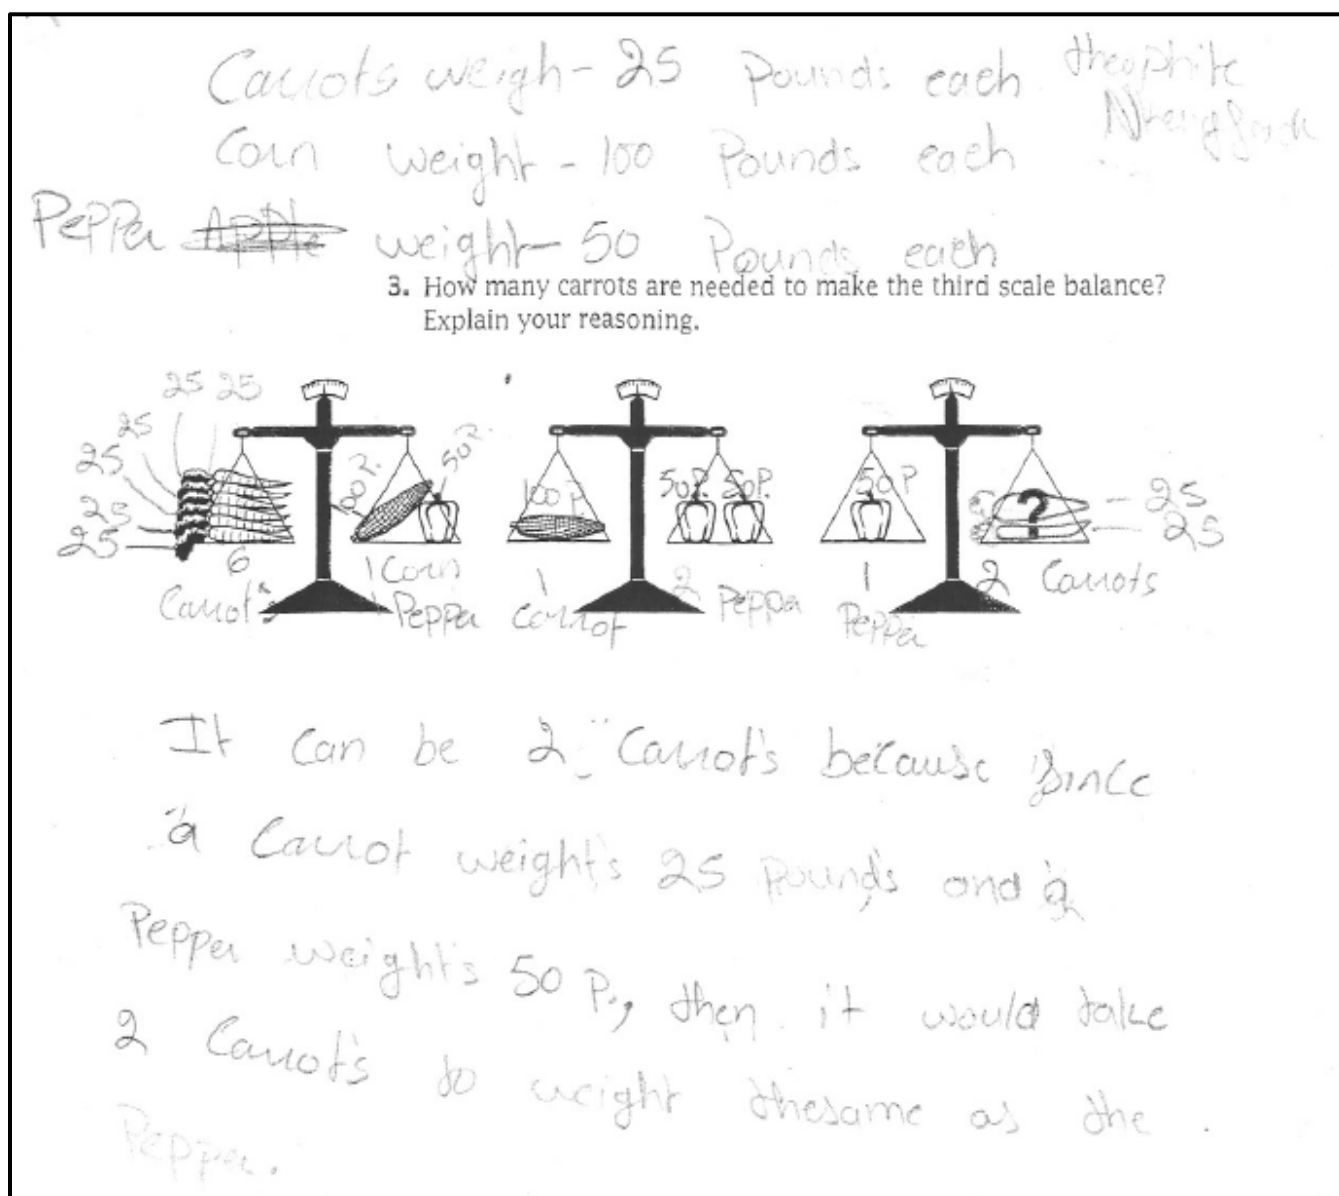 Carrots weigh - 25 Pounds each
Corn weight - 100 Pounds each
Pepper Apple weight - 50 Pounds each
3. How many carrots are needed to make the third scale balance?
Explain your reasoning.
25 25
25
25
25
25
100 P. 50 P.
100 P.
50 P. 50 P.
50 P
?
- 25
25
6 Carrot's
1 Corn
1 Pepper
1 Carrot
2 Pepper
1 Pepper
2 Carrots
It can be 2 Carrot's because since
a Carrot weight's 25 pound's and a
Pepper weight's 50 P., then it would take
2 Carrot's to weight thesame as the
Pepper.